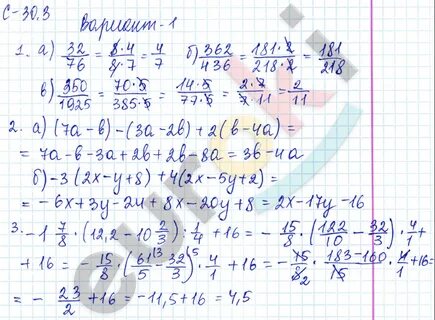 С-30.3 Вариант-1
1. а) 32/76 = 8·4/8·7 = 4/7 б) 362/436 = 181·2/218·2 = 181/218
в) 350/1925 = 70·5/385·5 = 14·5/77·5 = 2·7/7·11 = 2/11
2. а) (7a-b)-(3a-2b)+2(b-4a)=
= 7a-b-3a+2b+2b-8a = 3b-4a
б) -3(2x-y+8)+4(2x-5y+2)=
= -6x+3y-24+8x-20y+8 = 2x-17y-16
3. -1 7/8 · (12,2-10 2/3) : 1/4 + 16 = - 15/8 · (122/10 - 32/3) · 4/1 +
+ 16 = - 15/8 · (61/5 ^3 - 32/3 ^5) · 4/1 + 16 = - 15/8 2 · 183-160/15 · 4/1 + 16 =
= - 23/2 + 16 = -11,5+16 = 4,5
euroki